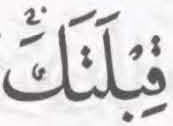 قِبْلَتَكَ